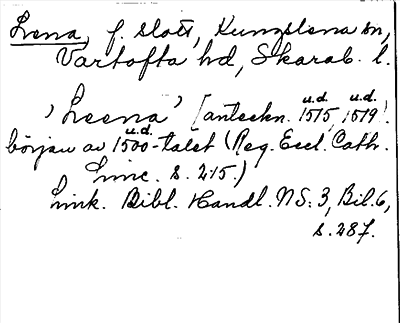 Lena, f. slott, Kungslena sn,
Vartofta hd, Skarab. l.
'Leena' [anteckn. u.d. 1515, u.d. 1519].
början av u.d. 1500-talet (Reg. Eccl. Cath.
Linc. s. 215.)
Link. Bibl. Handl. NS: 3, Bil. 6,
s. 287.